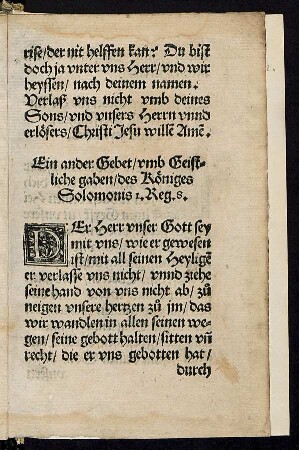 rise/der nit helffen kan? Du bist
doch ja vnter vns Herr/vnd wir
heyssen/ nach deinem namen.
Verlaß vns nicht vmb deines
Sons/vnd vnsers Herrn vnnd
erlösers/Christi Jesu willē Amē.
Ein ander Gebet/vmb Geist-
liche gaben/des Königes
Solomonis 1. Reg. 8.
DEr Herr vnser Gott sey
mit vns/wie er gewesen
ist/mit all seinen Heyligē
er verlasse vns nicht/ vnnd ziehe
seine hand von vns nicht ab/ zů
neigen vnsere hertzen zů jm/das
wir wandlen in allen seinen we-
gen/seine gebott halten/sitten vñ
recht/ die er vns gebotten hat/
durch